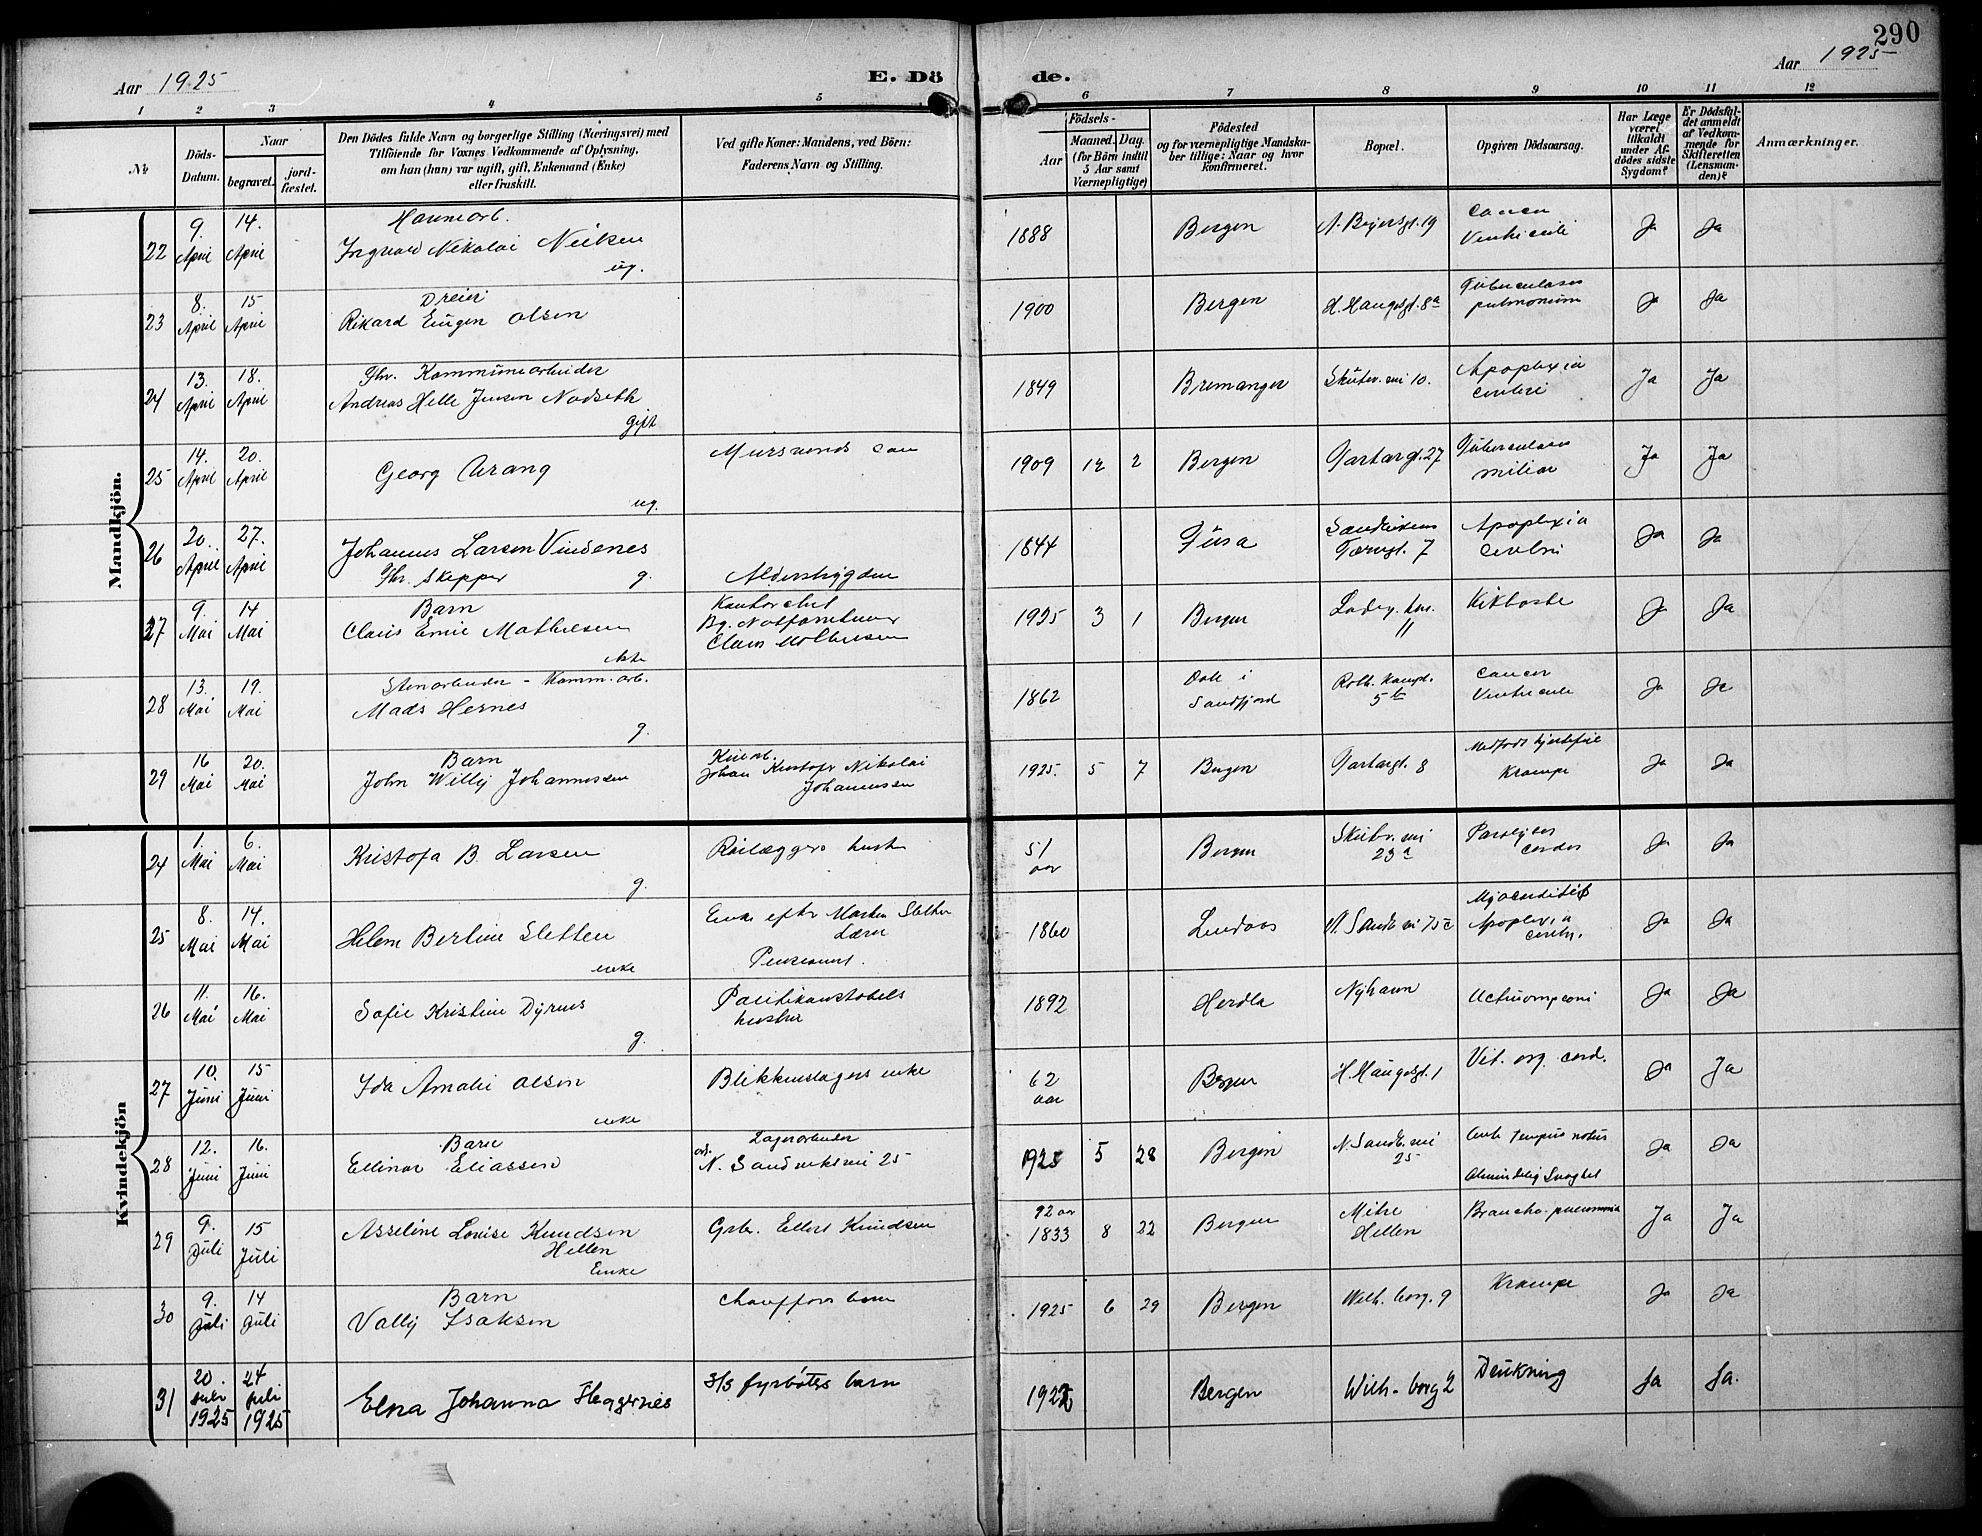 290
Aar 1925
E. Döde.
Aar 1925
1 2 3 4 5 6 7 8 9 10 11 12
Nr.
Döds-Datum.
Naar
begravet.
jord-fæstet.
Den Dödes fulde Navn og borgerlige Stilling (Næringsvei) med
Tilföiende for Voxnes Vedkommende af Oplysning,
om han (hun) var ugift, gift, Enkemand (Enke)
eller fraskilt.
Ved gifte Koner: Mandens, ved Börn:
Faderens Navn og Stilling.
Födsels-
Aar
Maaned. Dag.
(for Börn indtil
5 Aar samt
Værnepligtige)
Födested
og for værnepligtige Mandska-
ber tillige: Naar og hvor
konfirmeret.
Bopæl.
Opgiven Dödsaarsag.
Har Læge
været
tilkaldt
under Af-
dödes sidste
Sygdom?
Er Dödsfal-
det anmeldt
af Vedkom-
mende for
Skifteretten
(Lensman-
den)?
Anmærkninger.
Mandkjön.
22 9. April 14. April Havnearb.
Ingvald Nikolai Nielsen
ug.
1888 Bergen A. Beyersgt. 19 Cancer Ventriculi Ja Ja
23 8. April 15 April Dreier
Rikard Eugen Olsen
1900 Bergen H. Haugesgt. 8a Tuberculoses pulmonum Ja Ja
24 13. April 18. April Fhv. Kommunearbeider
Andreas Helle Jensen Nodseth
gift
1849 Bremanger Skutev.vei 10. Apoplexia cerebri Ja Ja
25 14. April 20. April Georg Urang
ug.
Mursvends søn
1909 12 2 Bergen Tartargt. 27 Tuberculoses miliar Ja Ja
26 20. April 27. April Johannes Larsen Vindenes
Fhv. Skepper g.
Alderstrygden
1844 Fusa Sandvikens Torvgt. 7 Apoplexia cerebri Ja Ja
27 9. Mai 14 Mai Barn
Claus Emil Mathiesen
ekte
Kontorchef
Claus Mathiesen
1925 3 1 Bergen 11 Kikhoste Ja Ja
28 13. Mai 19. Mai Stenarbeider - Komm. arb.
Mads Hernes
g.
1862 Dale i Sandfjord 5b Cancer Ventriculi Ja Ja
29 16 Mai 20. Mai Barn
John Willy Johannessen
Johan Kristofer Nikolai
Johannessen
1925. 5 7 Bergen Tartargt. 8 Medfødt hjertefeil
Krampe Ja Ja
Kvindekjön
24 1. Mai 6. Mai Kristofa B. Larsen
g.
Rørlæggers hustr
51 aar Bergen Skutev.vei 23a Paralyses cordis Ja Ja
25 8. Mai 14. Mai Helene Bertine Sletten
enke
Enke efter Morten Sletten
Lærer
Pensionist.
1860 Lindaas N. Sandv.vei 75c Myocarditis
Apoplexia cerebr. Ja Ja
26 11. Mai 16. Mai Sofie Kristine Dyrnes
g.
Politikonstabels
hustru
1892 Herdla Nyhavn Ja Ja
27 10. Juni 15 Juni Ida Amalie Olsen
enke
Blikkenslagers enke
62 aar Bergen H. Haugesgt. 1 Vit. org. cord. Ja Ja
28 12. Juni 16. Juni Barn
Ellinor Eliassen
Lagerarbeider
N. Sandviksvei 25
1925 5 28 Bergen N. Sandv.vei 25 Ante tempus natus
Almindelig Svaghet Ja Ja
29 9. Juli 15 Juli Asseline Lovise Knudsen
Hellen
Enke
Grbr. Ellert Knudsen
92 aar
1833 8 22 Bergen Midtre Hellen Broncho-pneumonia Ja Ja
30 9. Juli 14 Juli Barn
Vally Isaksen
Chaufførs barn
1925 6 29 Bergen Wilh. borg. 9 Krampe Ja Ja
31 20. Juli 1925 24 Juli 1925 Elna Johanna Heggernes
S/S fyrbøters barn
1922 Bergen Wilh-borg 2 Drukning Ja Ja.